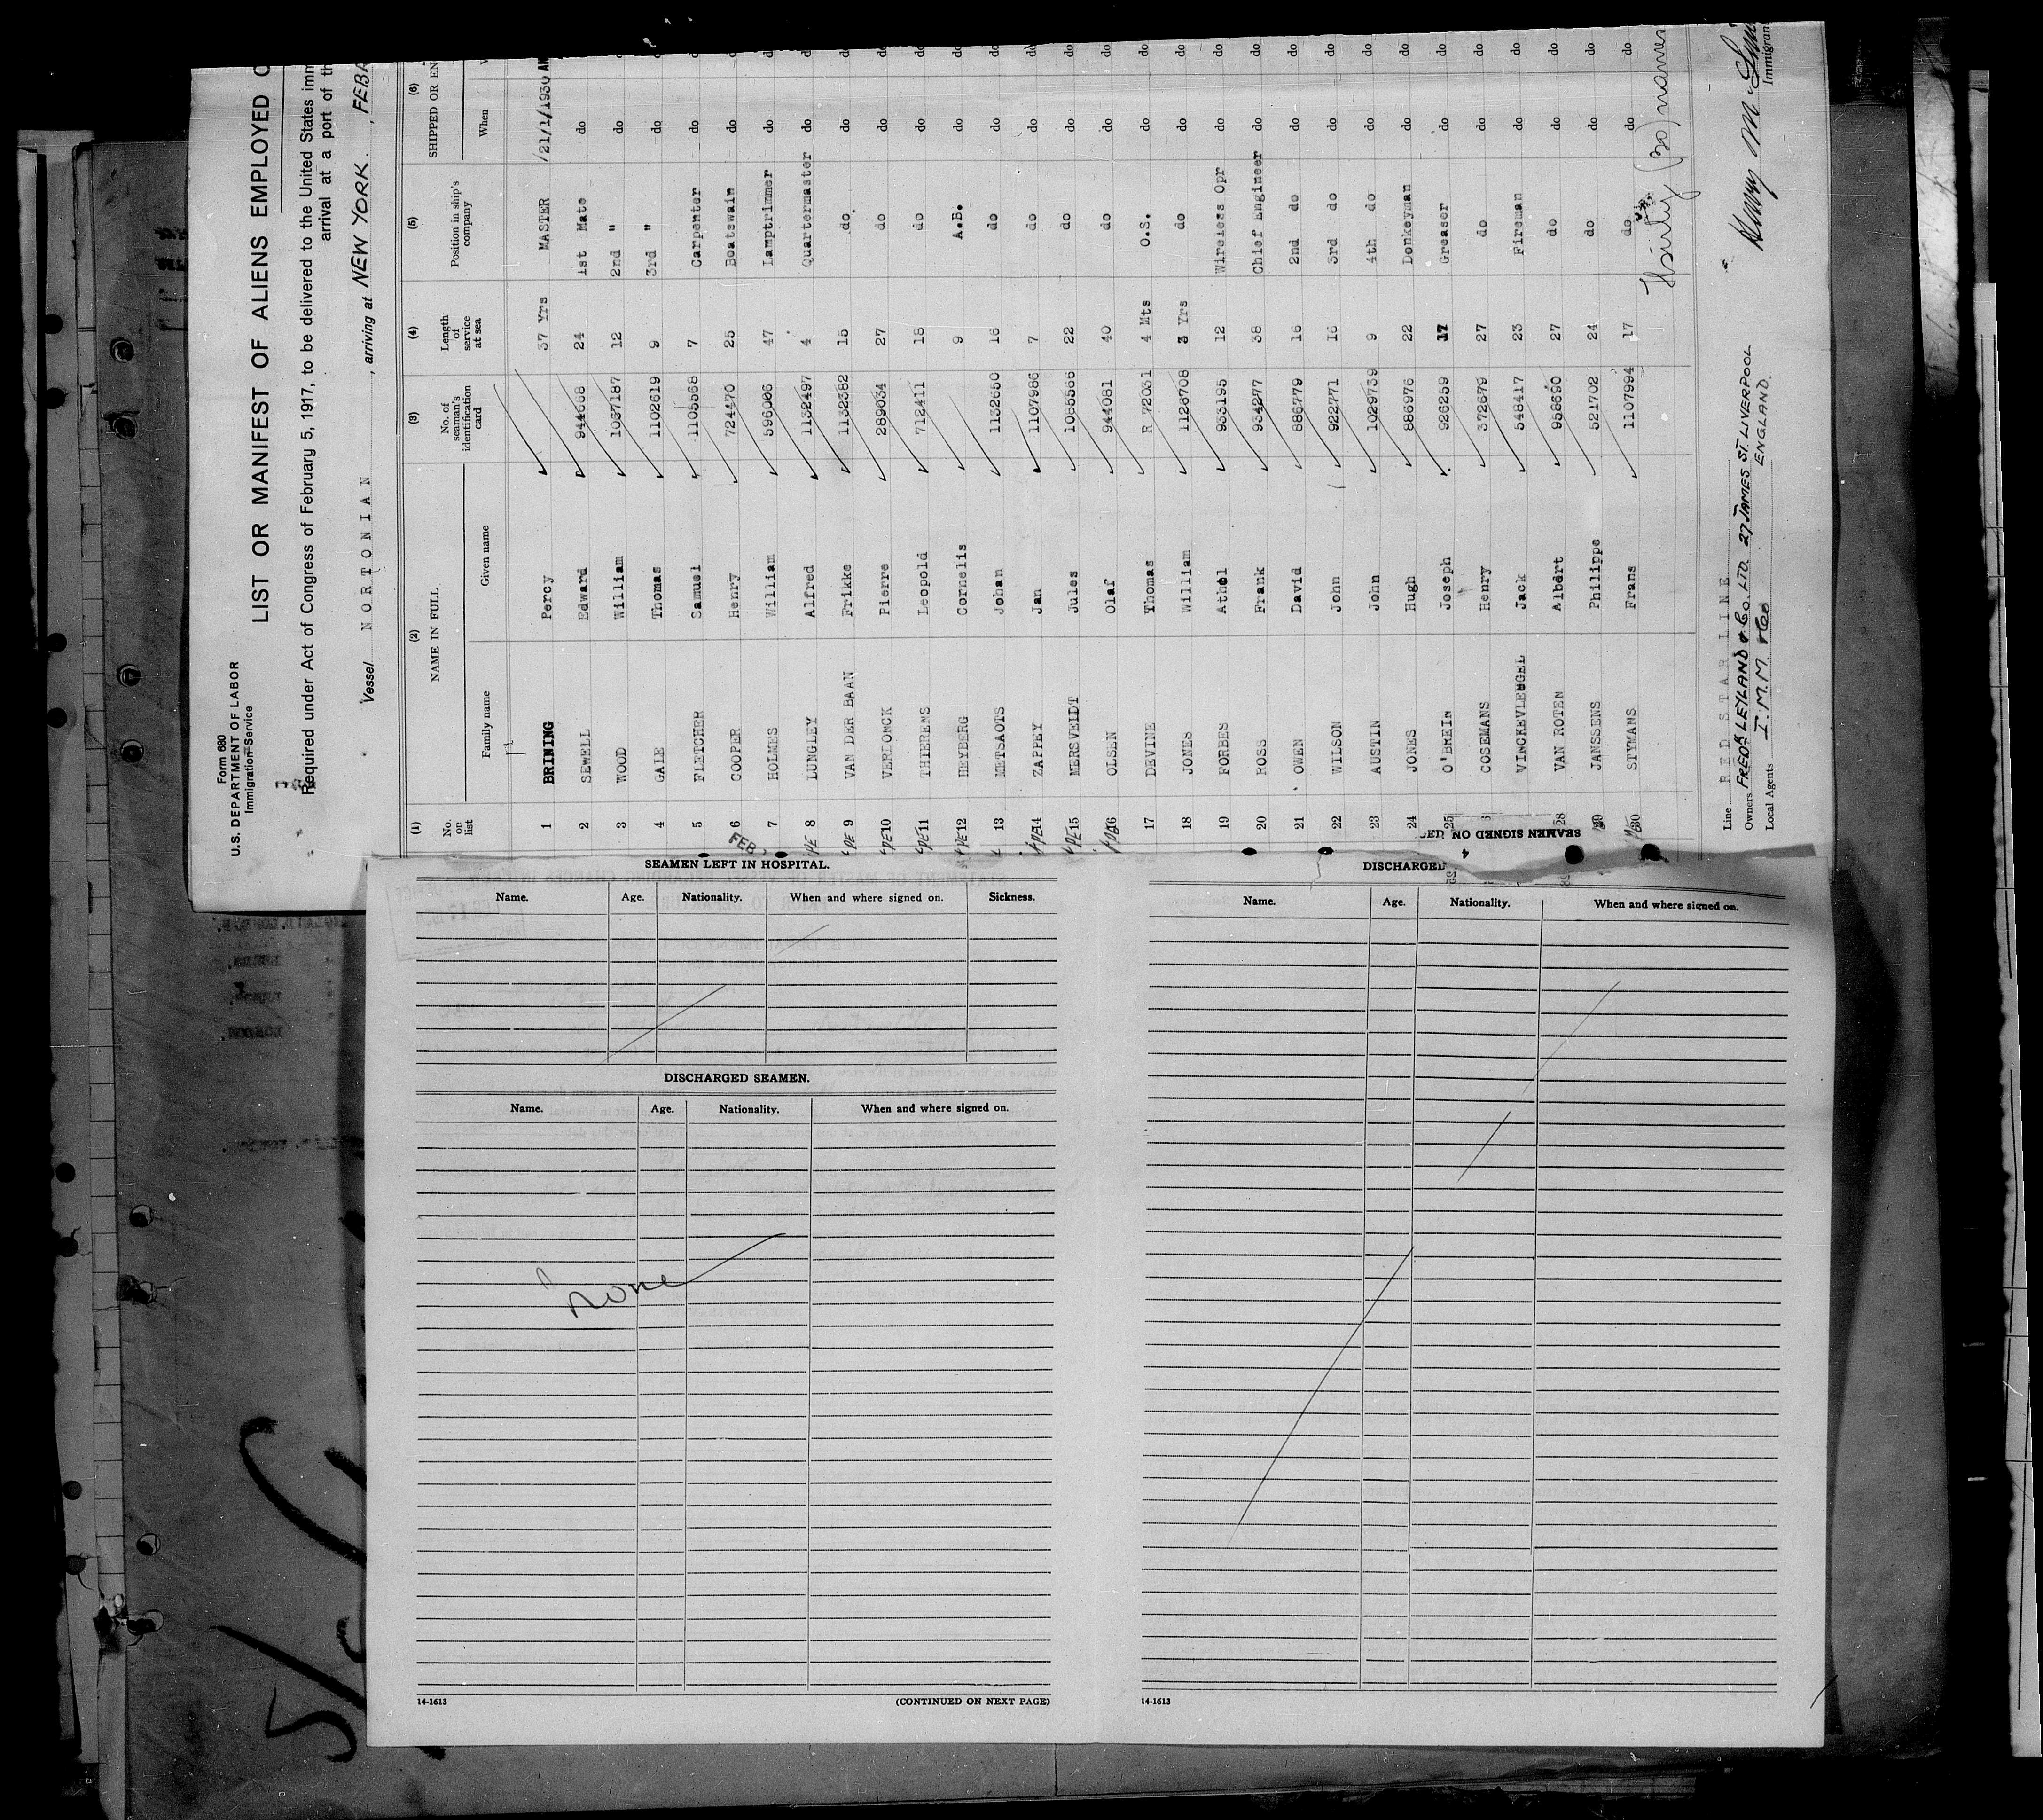 Form 680
U.S. DEPARTMENT OF LABOR
Immigration Service
LIST OR MANIFEST OF ALIENS EMPLOYED
Required under Act of Congress of February 5, 1917, to be delivered to the United States
arrival at a port of
Vessel NORTONIAN, arriving at NEW YORK.
(1) (2) (3) (4) (5) (6)
NAME IN FULL SHIPPED OR
No. on list Family name Given name No. of seaman's identification card Length of service at sea Position in ship's company When
1 BRINING Percy 37 Yrs MASTER 21/1/1930
2 SEWELL Edward 944668 24 1st Mate do do
3 WOOD William 1037187 12 2nd " do do
4 GALE Thomas 1102619 9 3rd " do do
5 FLETCHER Samuel 1105568 7 Carpenter do do
6 COOPER Henry 724470 25 Boatswain do do
7 HOLMES William 596006 47 Lamptrimmer do do
8 LUNGLEY Alfred 1132497 4 Quartermaster do do
9 VAN DER BAAN Frikke 1132382 15 do do do
10 VERLOMCK Pierre 289034 27 do do do
11 THIERENS Leopold 712411 18 do do do
12 HEYBERG Cornelis 9 A.B. do do
13 METSAOTS Johan 1132650 16 do do do
14 ZAPPEY Jan 1107986 7 do do do
15 MERSVEIDT Jules 1085566 22 do do do
16 OLSEN Olaf 944081 40 do do do
17 DEVINE Thomas R 72031 4 Mts O.S. do do
18 JONES William 1128708 3 Yrs do do do
19 FORBES Athol 933195 12 Wireless Opr do do
20 ROSS Frank 934277 38 Chief Engineer do do
21 OWEN David 886779 16 2nd do do do
22 WILSON John 922771 16 3rd do do do
23 AUSTIN John 1029739 9 4th do do do
24 JONES Hugh 886976 22 Donkeyman do do
25 O'BREIN Joseph 926259 17 Greaser do do
COSEMANS Henry 372679 27 do do do
VINCKEVLEUGEL Jack 548417 23 Fireman do do
28 VAN ROTEN Albert 958690 27 do do do
29 JANSSENS Philippe 521702 24 do do do
30 STUYMANS Frans 1107994 17 do do do
(30) names
Line RED STAR LINE
Owners FREDK LEYLAND & Co. LTD. 27 JAMES ST. LIVERPOOL ENGLAND.
Local Agents I.M.M. & Co
Immigrant
SEAMEN SIGNED ON
SEAMEN LEFT IN HOSPITAL.
Name. Age. Nationality. When and where signed on. Sickness.
DISCHARGED SEAMEN.
Name. Age. Nationality. When and where signed on.
None
14-1613 (CONTINUED ON NEXT PAGE)
DISCHARGED
Name. Age. Nationality. When and where signed on.
14-1613